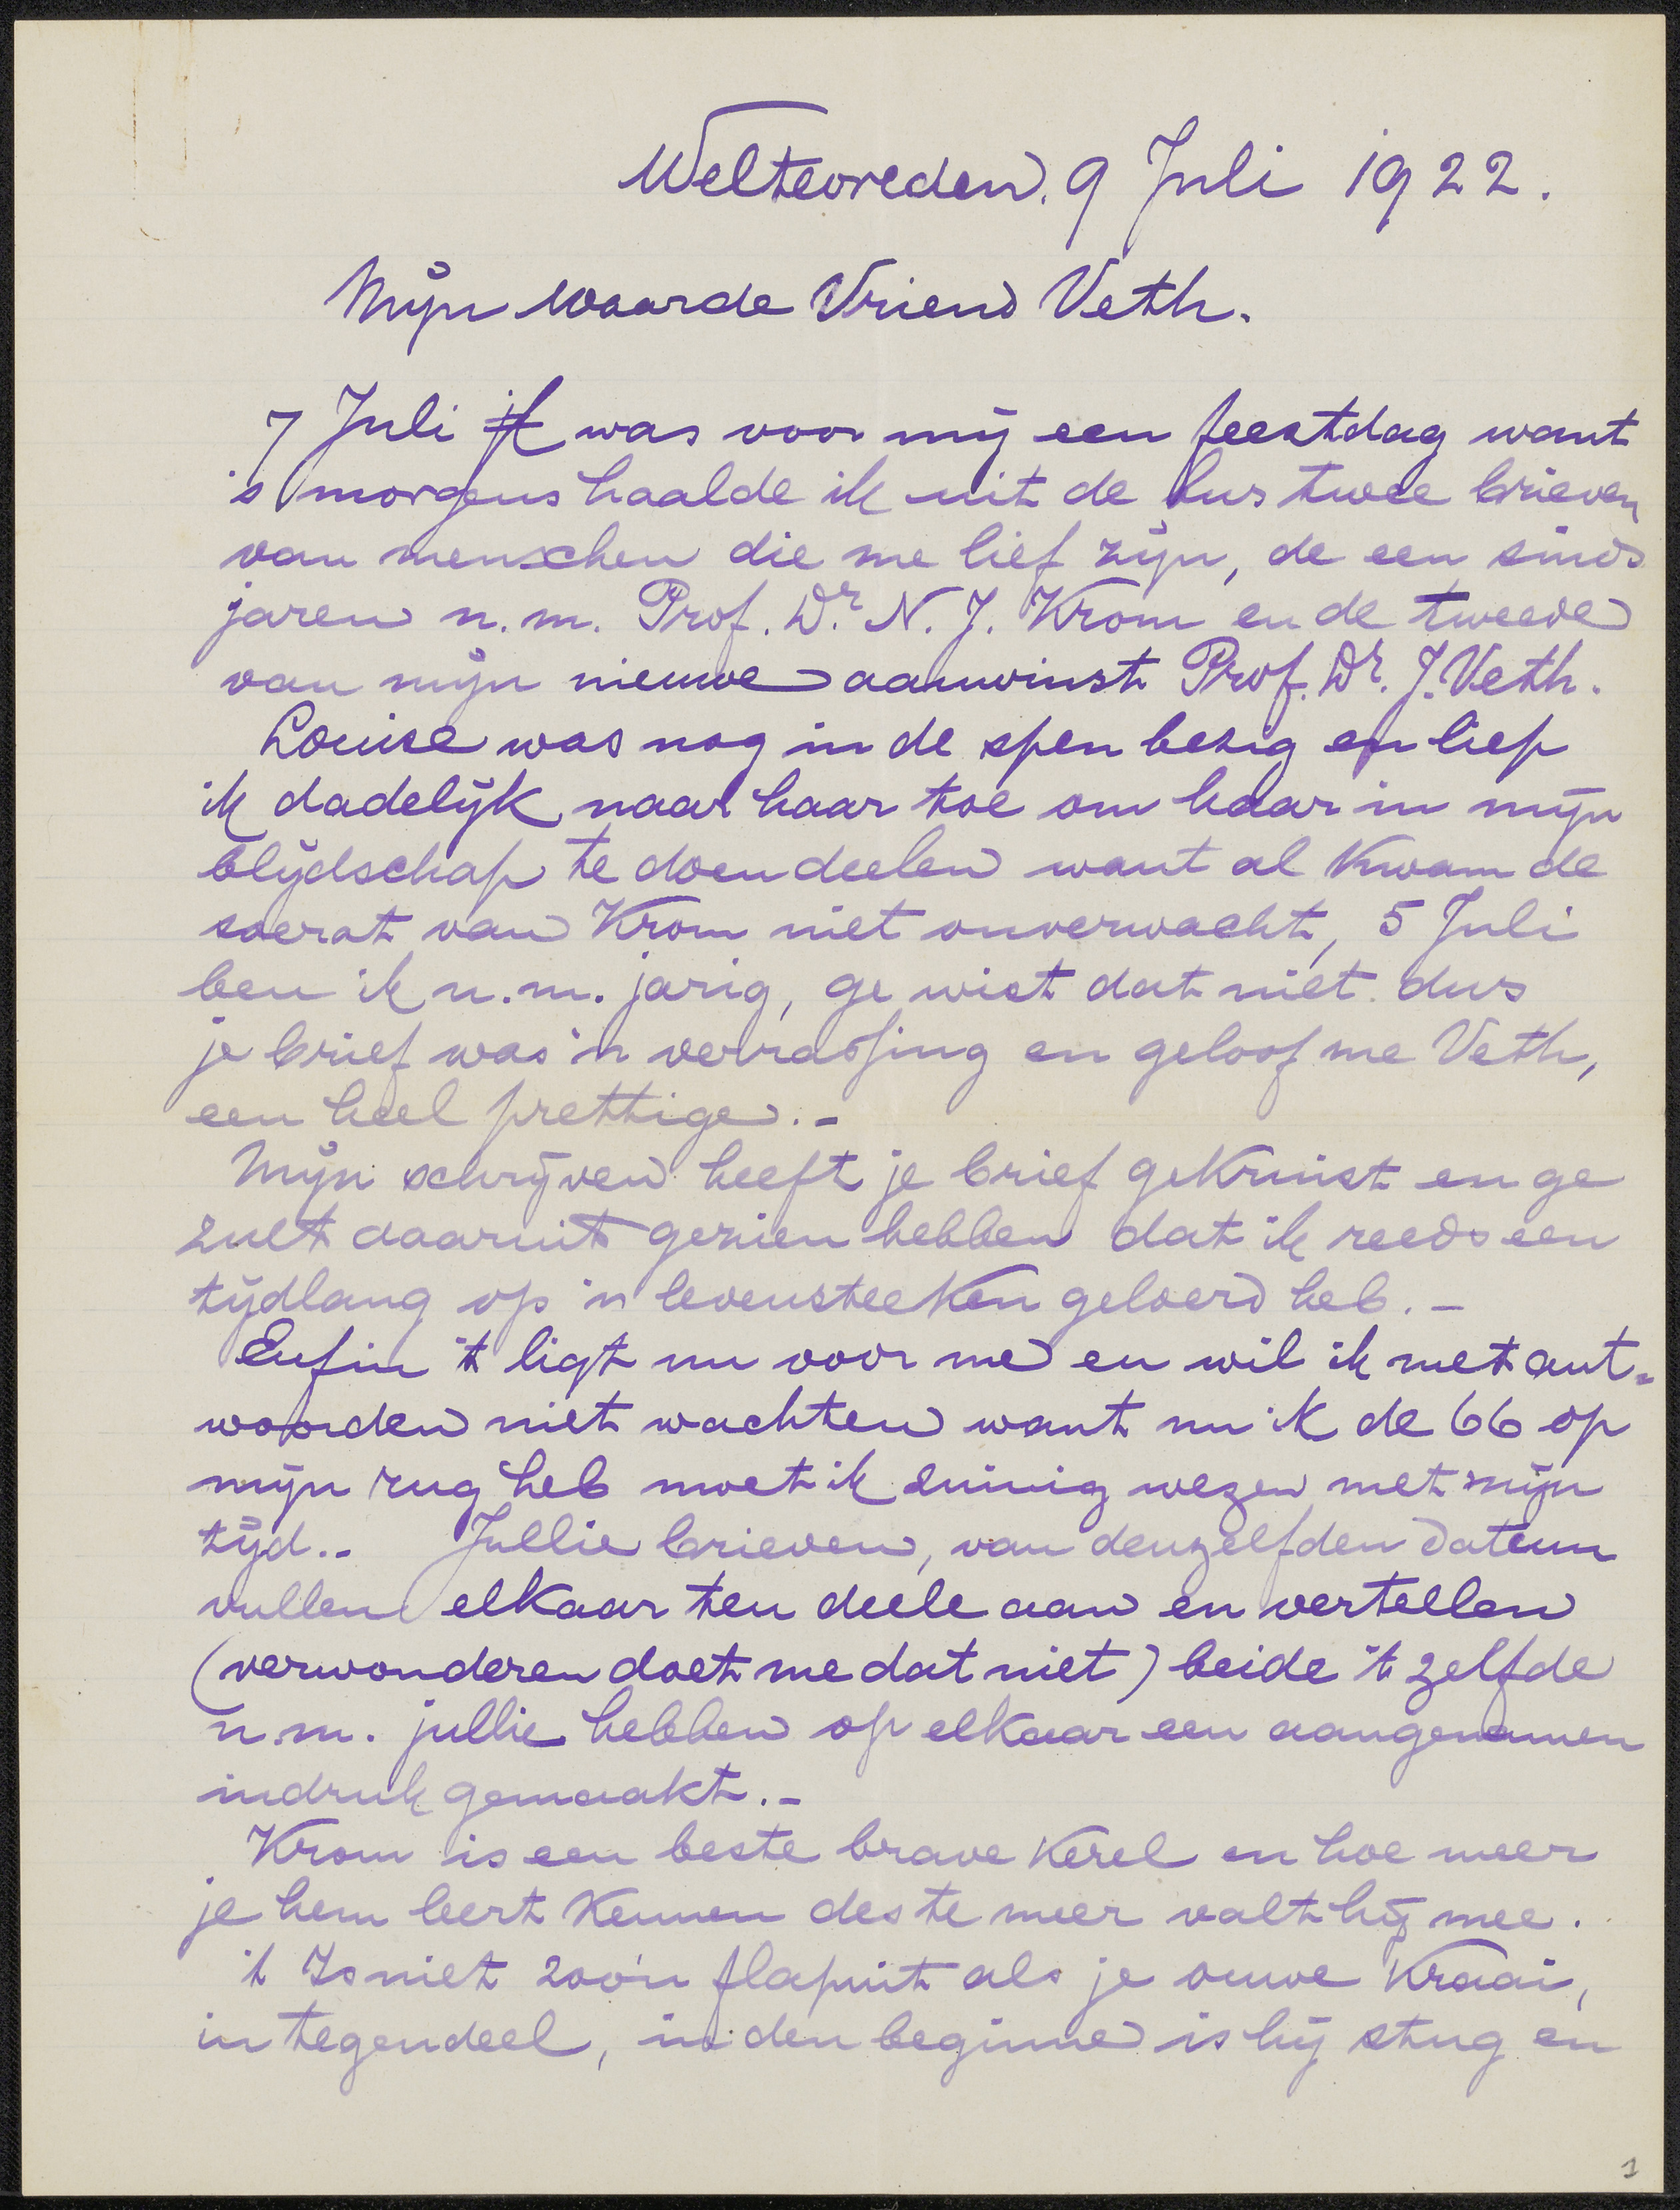 Weltevreden. 9 Juli 1922.
Mijn waarde Vriend Veth.
7 Juli jl was voor mij een feestdag want
's morgens haalde ik uit de bus twee brieven
van menschen die me lief zijn, de een sinds
jaren n.m. Prof. Dr. N. J. Krom en de tweede
van mijn nieuwe aanwinst Prof. Dr. J. Veth.
Louise was nog in de spen bezig en liep
ik dadelijk naar haar toe om haar in mijn
blijdschap te doen deelen want al kwam de
soerat van Krom niet onverwacht, 5 Juli
ben ik n.m. jarig, ge wist dat niet dus
je brief was 'n verrassing en geloof me Veth,
een heel prettige. -
Mijn schrijven heeft je brief gekruist en ge
zult daaruit gezien hebben dat ik reeds een
tijdlang op 'n levensteeken geloerd heb. -
Enfin 't ligt nu voor me en wil ik met ant-
woorden niet wachten want nu ik de 66 op
mijn rug heb moet ik zuinig wezen met mijn
tijd.. Jullie brieven, van denzelfden datum
vullen elkaar ten deele aan en vertellen
(verwonderen doet me dat niet) beide 't zelfde
n.m. jullie hebben op elkaar een aangenamen
indruk gemaakt. -
Krom is een beste brave kerel en hoe meer
je hem leert kennen des te meer valt hij mee.
't Is niet zoo'n flapuit als je ouwe Kraai,
in tegendeel, in den beginne is hij stug en
1